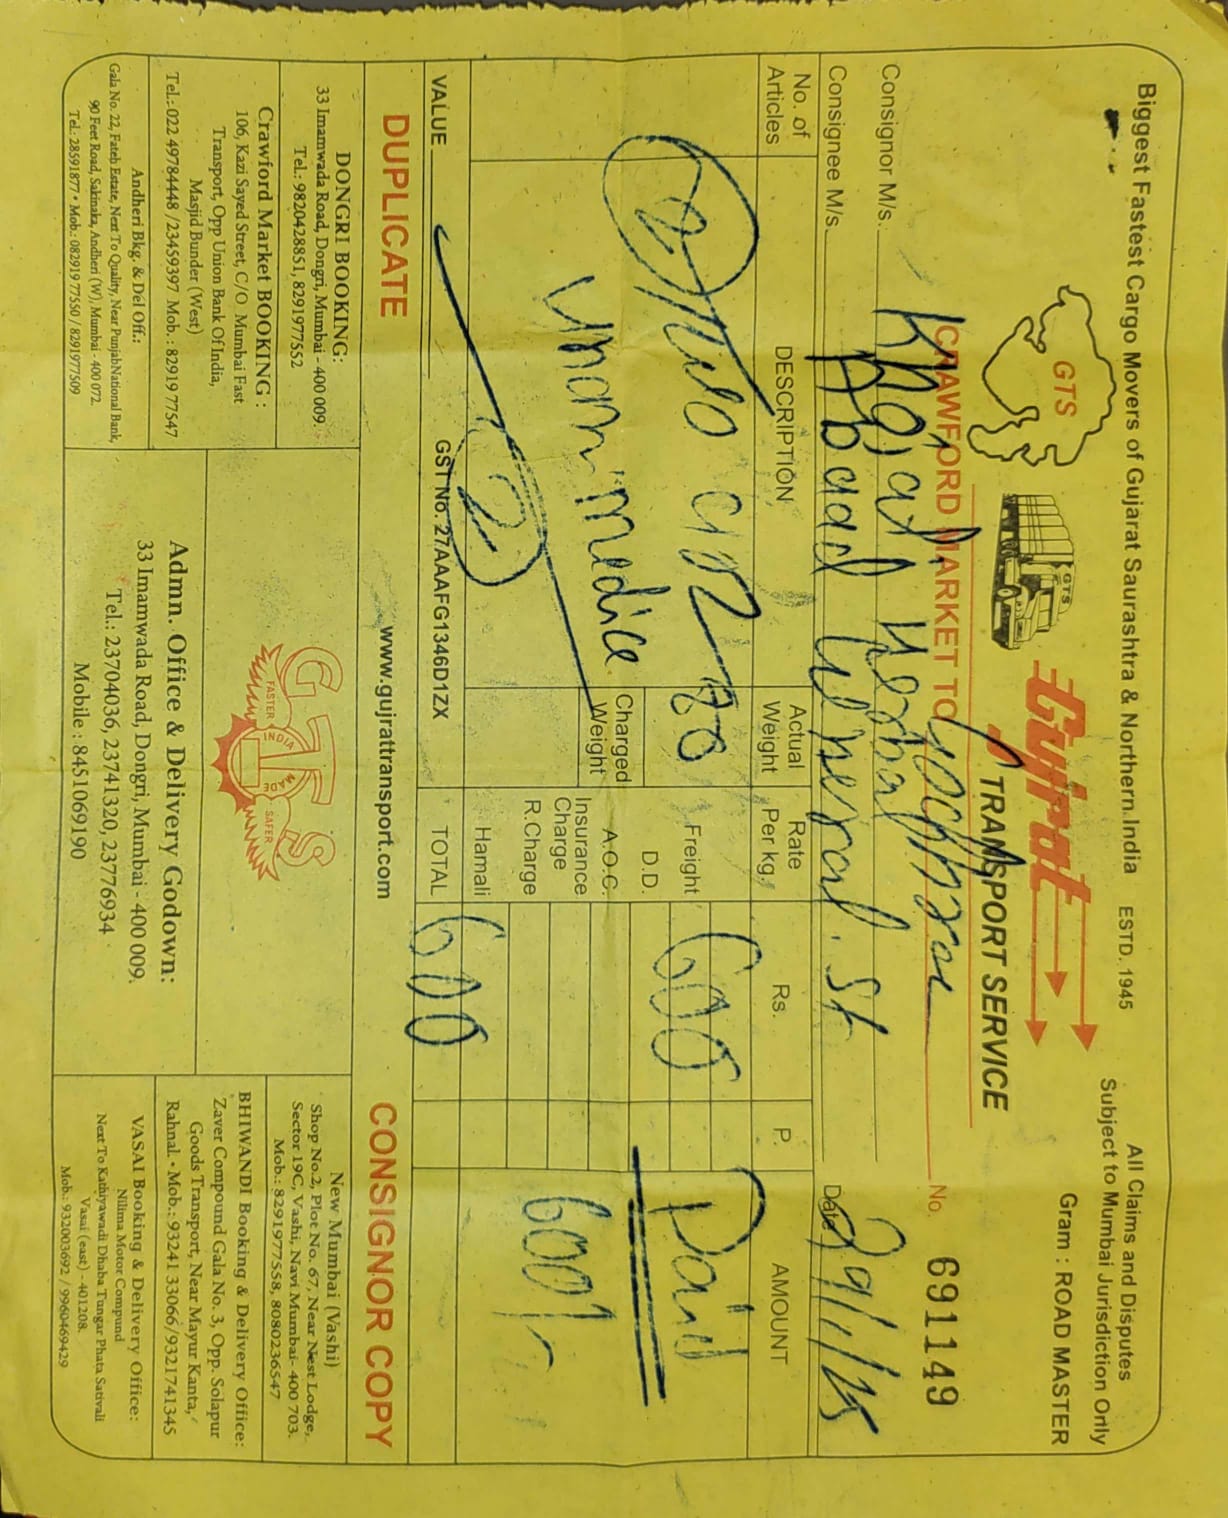 Biggest Fastest Cargo Movers of Gujarat Saurashtra & Northern India ESTD. 1945
All Claims and Disputes
Subject to Mumbai Jurisdiction Only
Gram : ROAD MASTER
GTS
GTS
Gujrat
TRANSPORT SERVICE
CRAWFORD MARKET TO
No. 691149
Consignor M/s. Khajal Herbal
Consignee M/s. Abaad General. St
Date 29/1/25
No. of Articles
DESCRIPTION
Actual Weight
Rate Per kg.
Rs.
P.
AMOUNT
2
80
Freight 600
Paid
D.D.
Charged Weight
A.O.C.
Insurance Charge
R.Charge
600/-
Hamali
2
VALUE
GST No. 27AAAFG1346D1ZX
TOTAL 600
DUPLICATE
www.gujrattransport.com
CONSIGNOR COPY
DONGRI BOOKING:
33 Imamwada Road, Dongri, Mumbai - 400 009.
Tel.: 9820428851, 8291977552
Crawford Market BOOKING :
106, Kazi Sayed Street, C/O. Mumbai Fast
Transport, Opp Union Bank Of India,
Masjid Bunder (West)
Tel.: 022 49784448 / 23459397 Mob. : 82919 77547
Andheri Bkg. & Del Off.:
Gala No. 22, Fateh Estate, Next To Quality, Near PunjabNational Bank,
90 Feet Road, Sakinaka, Andheri (W), Mumbai - 400 072.
Tel.: 28591877 • Mob.: 082919 77550 / 8291977509
GTS
FASTER
INDIA
MADE
SAFER
Admn. Office & Delivery Godown:
33 Imamwada Road, Dongri, Mumbai - 400 009.
Tel.: 23704036, 23741320, 23776934
Mobile : 8451069190
New Mumbai (Vashi)
Shop No.2, Plot No. 67, Near Nest Lodge,
Sector 19C, Vashi, Navi Mumbai- 400 703.
Mob.: 8291977558, 8080236547
BHIWANDI Booking & Delivery Office:
Zaver Compound Gala No. 3, Opp. Solapur
Goods Transport, Near Mayur Kanta,
Rahnal. • Mob.: 93241 33066/9321741345
VASAI Booking & Delivery Office:
Nilima Motor Compund
Next To Kathiyawadi Dhaba Tungar Phata Sativali
Vasai (east) - 401208.
Mob.: 932003692 / 9960469429